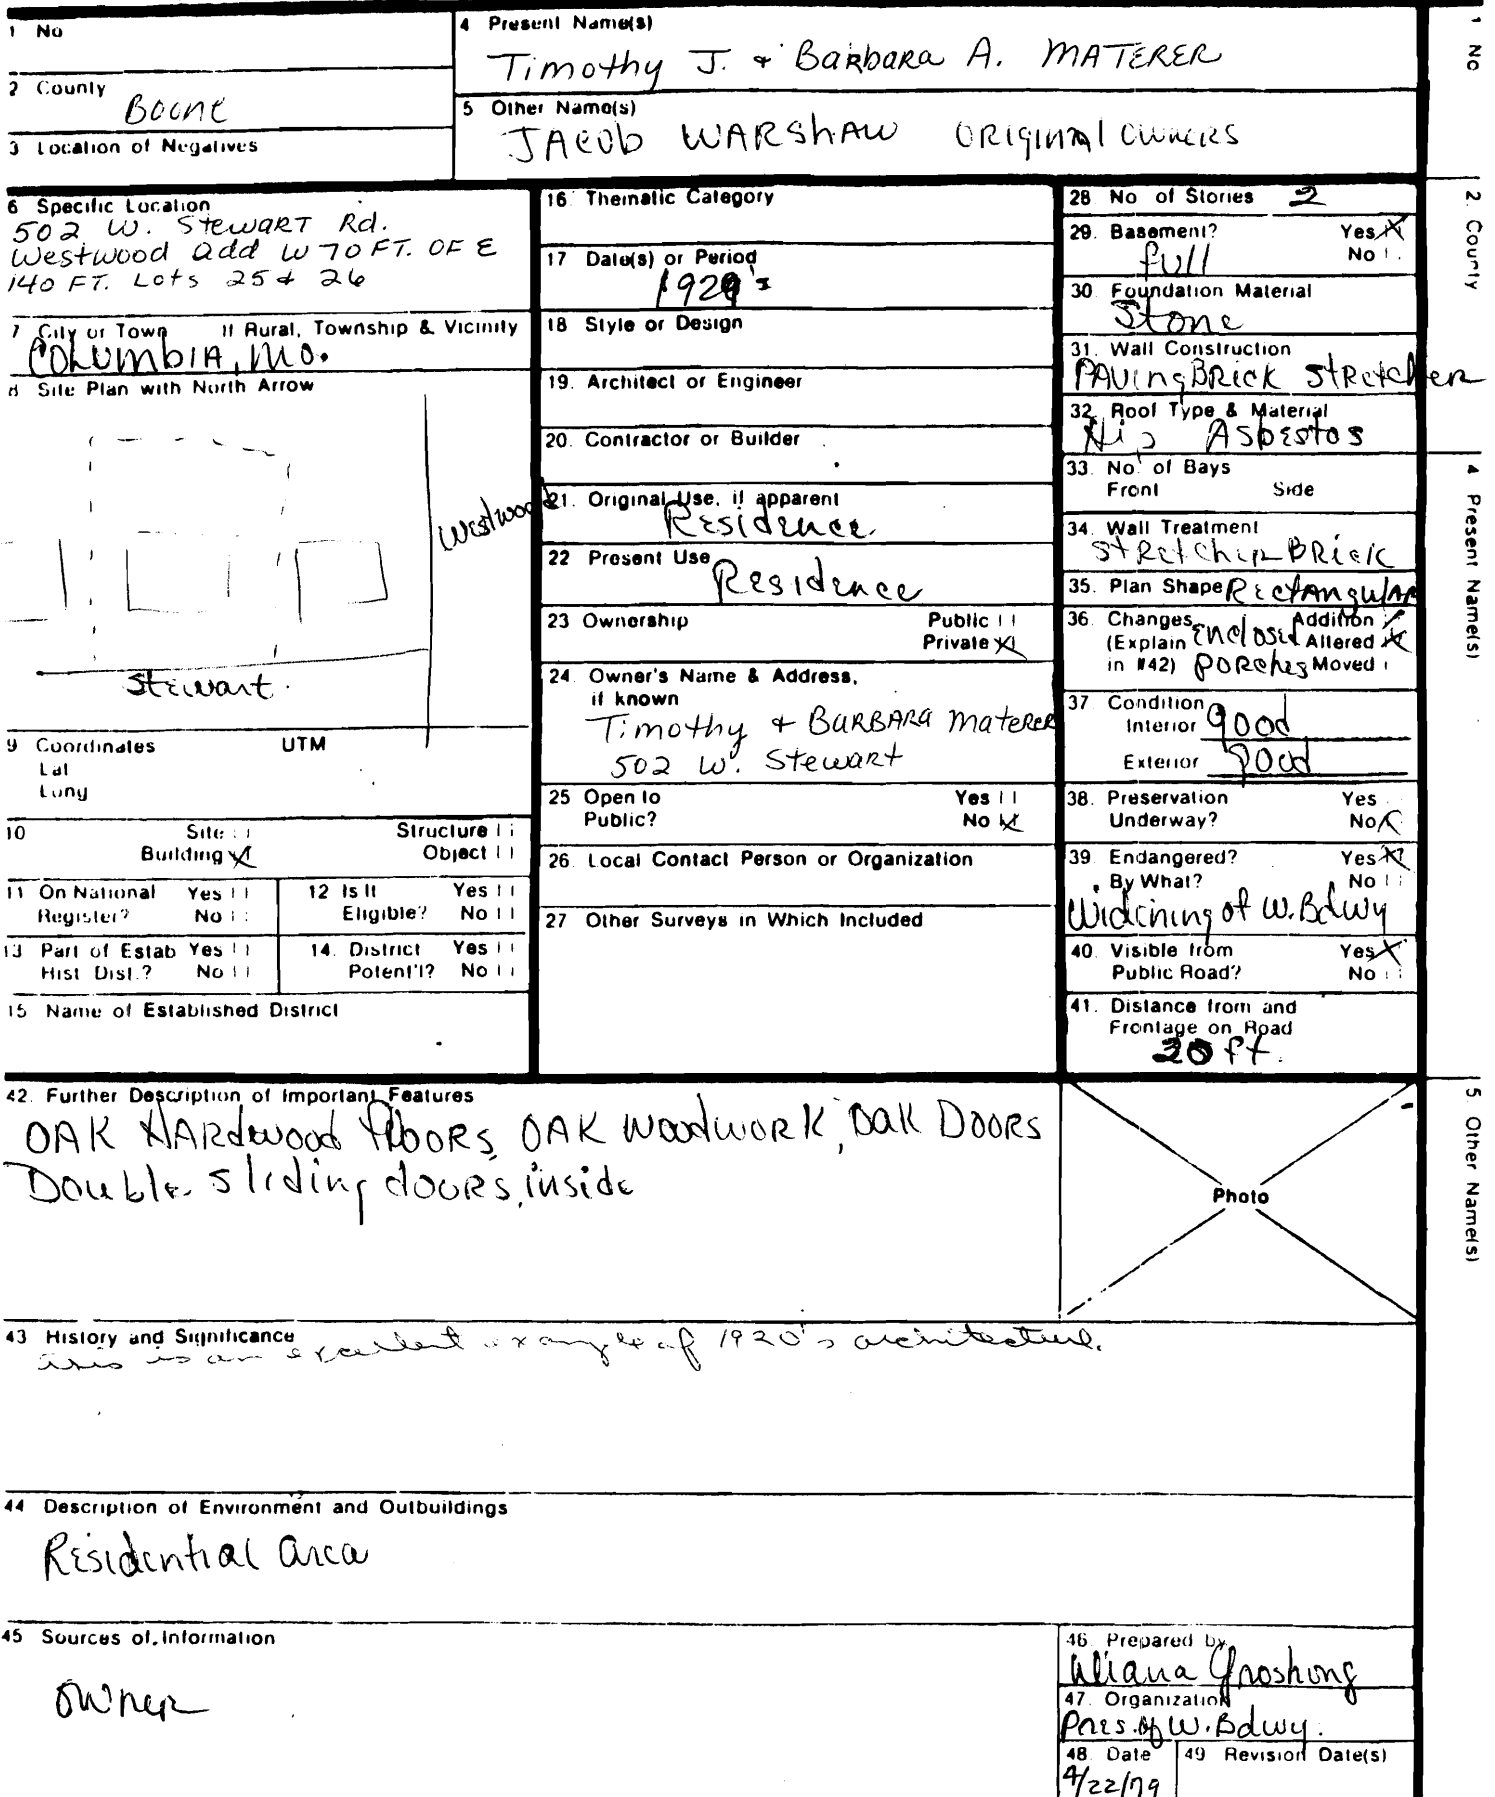 1 No
4 Present Name(s)
Timothy J. + Barbara A. MATERER
2 County
Boone
5 Other Name(s)
JACOB WARSHAW ORIGINAL OWNERS
3 Location of Negatives
6 Specific Location
502 W. Stewart Rd.
Westwood Add W 70 FT. OF E
140 FT. Lots 25 & 26
7 City or Town If Rural, Township & Vicinity
COLUMBIA, MO.
8 Site Plan with North Arrow
Westwood
Stewart
9 Coordinates UTM
Lat
Long
10 Site Structure
Building Object
11 On National Register? Yes No
12 Is It Eligible? Yes No
13 Part of Estab Hist. Dist.? Yes No
14. District Potent'l? Yes No
15 Name of Established District
16 Thematic Category
17 Date(s) or Period
1920's
18 Style or Design
19. Architect or Engineer
20. Contractor or Builder
21. Original Use, if apparent
Residence
22 Present Use
Residence
23 Ownership Public
Private
24. Owner's Name & Address,
if known
Timothy + BARBARA Materer
502 W. Stewart
25 Open to Public? Yes No
26. Local Contact Person or Organization
27 Other Surveys in Which Included
28 No of Stories 2
29. Basement? Yes
full No
30 Foundation Material
Stone
31. Wall Construction
PAVING BRICK STRETCHER
32. Roof Type & Material
Hip ASbestos
33. No. of Bays
Front Side
34. Wall Treatment
STRetcher BRick
35. Plan Shape RectAngulAR
36. Changes Addition
(Explain enclosed Altered
in #42) PORches Moved
37. Condition
Interior good
Exterior good
38. Preservation Yes
Underway? No
39. Endangered? Yes
By What? No
Widening of W. Bdwy
40. Visible from Yes
Public Road? No
41. Distance from and
Frontage on Road
20 ft.
42. Further Description of Important Features
OAK HARdwood floors, OAK WoodwoRK, OaK DOORS
Double sliding doors inside
Photo
43 History and Significance
This is an excellent example of 1920's architecture.
44 Description of Environment and Outbuildings
Residential area
45 Sources of Information
owner
46. Prepared by
Aliana Groshong
47. Organization
Pres. of W. Bdwy.
48 Date
4/22/79
49 Revision Date(s)
1 No
2 County
4 Present Name(s)
5 Other Name(s)